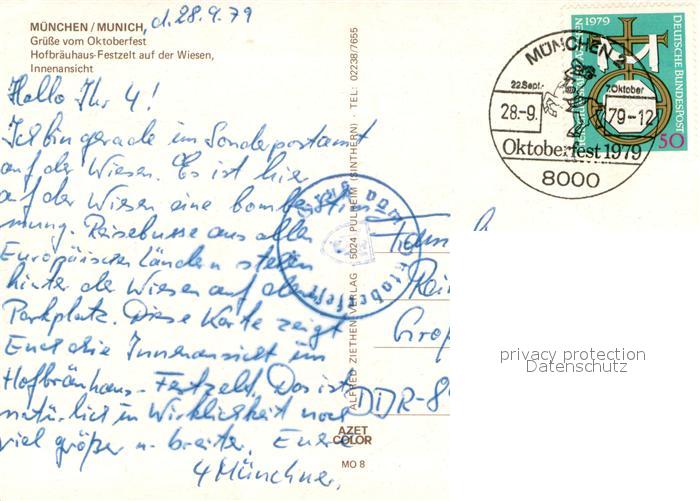 MÜNCHEN / MUNICH, d. 28.9.79
Grüße vom Oktoberfest
Hofbräuhaus-Festzelt auf der Wiesen,
Innenansicht
Hallo Ihr 4!
Ich bin gerade im Sonderpostamt
auf der Wiesen. Es ist hier
auf der Wiesen eine bomben Stim
mung. Reisebusse aus allen
Europäischen Ländern stehen
hinter der Wiesen auf dem
Parkplatz. Diese Karte zeigt
Euch die Innenansicht im
Hofbräuhaus-Festzelt. Das ist
natürlich in Wirklichkeit noch
viel größer u. breiter. Eure
4 Münchner.
ALFRED ZIETHEN VERLAG · 5024 PULHEIM (SINTHERN) · TEL.: 02238/7655
AZET
COLOR
MO 8
vom Oktoberfest
MÜNCHEN 2
22.Sept.-
7.Oktober
28.-9.
79-12
Oktoberfest 1979
8000
1979
DEUTSCHE BUNDESPOST
50
Fam
Rei
Grop
DDR-8
privacy protection
Datenschutz